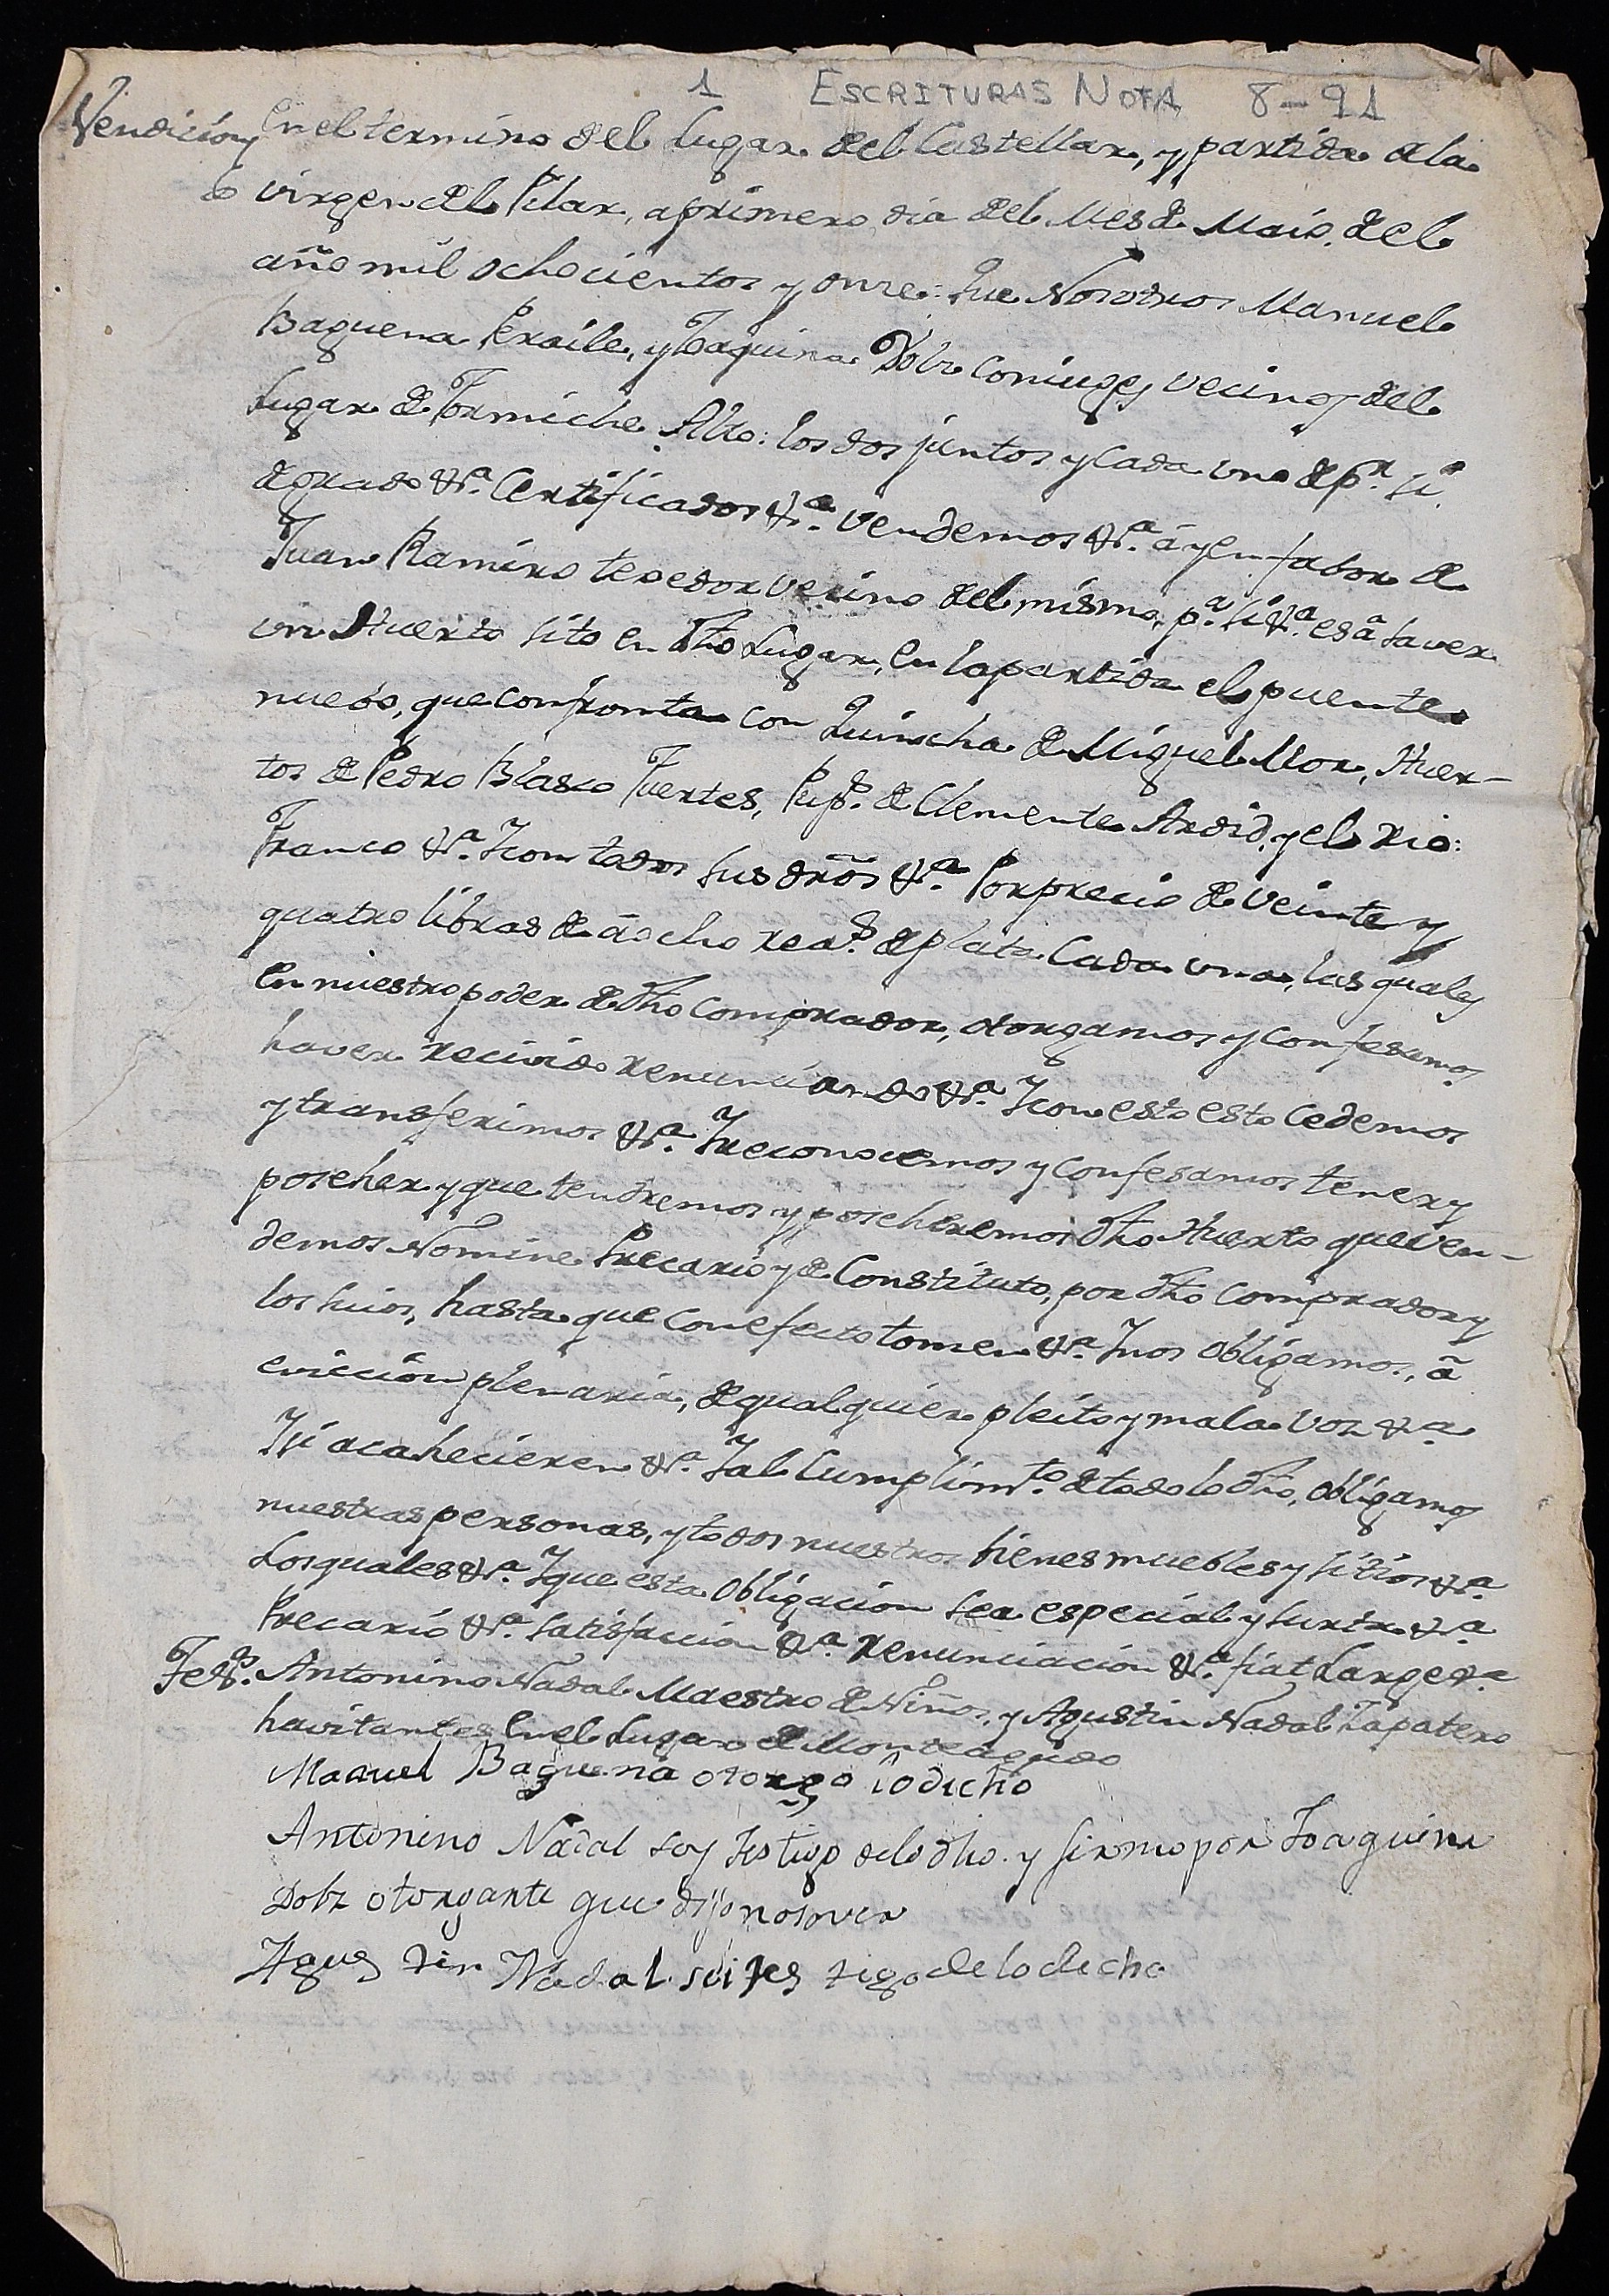 1 ESCRITURAS NOTA 8-91
Vendicion En el termino del Lugar del Castellar, y partida de la
virgen del Pilar, a primero dia del Mes de Maio del
año mil ochocientos y onze: Que Nosotros Manuel
Baguena Peraile, y Joaquina Dolz Coniuges vecinos del
Lugar de Formiche Alto: los dos juntos y cada uno de p.r si
de grado &.a Certificados &.a vendemos &.a á y en fabor de
Juan Ramiro texedor vecino del mismo, p.a si &.a es á saver
un Huerto sito en dho Lugar, en la partida el puente
nuebo, que confronta con Quincha de Miguel Mor, Huer-
tos de Pedro Blasco Fuertes, Pup.s de Clemente Ardid, y el rio:
Franco &.a Y con todos sus dro̅s &.a Por precio de veinte y
quatro libras de á ocho rea.s de plata cada una, las quales
en nuestro poder de dho Comprador, otorgamos y confesamos
haver recivido renunciando &.a Y con esto esto cedemos
y transferimos &.a Y reconocemos y confesamos tener y
poseher y que tendremos y poseheremos dho Huerto que ven-
demos Nomine Precario y de Constituto, por dho comprador y
los suios, hasta que con efecto tomen &.a Y nos obligamos, á
eviccion plenaria, de qualquier pleito y mala voz &.a
Y si acaheciere &.a Y al Cumplim.to de todo lo dho, obligamos
nuestras personas, y todos nuestros bienes muebles y sitios &.a
Los quales &.a Y que esta obligacion sea especial y surta &.a
Precario &.a Satisfaccion &.a renunciacion &.a fiat Large &.a
Tes.s Antonino Nadal Maestro de Niños, y Agustin Nadal Zapatero
havitantes En el Lugar de Monteagudo
Manuel Baguena otorgo lo dicho
Antonino Nadal soy testigo de lo dho. y firmo por Joaquina
Dolz otorgante que dijo no saver
Agus tin Nadal soi tes tigo de lo dicho